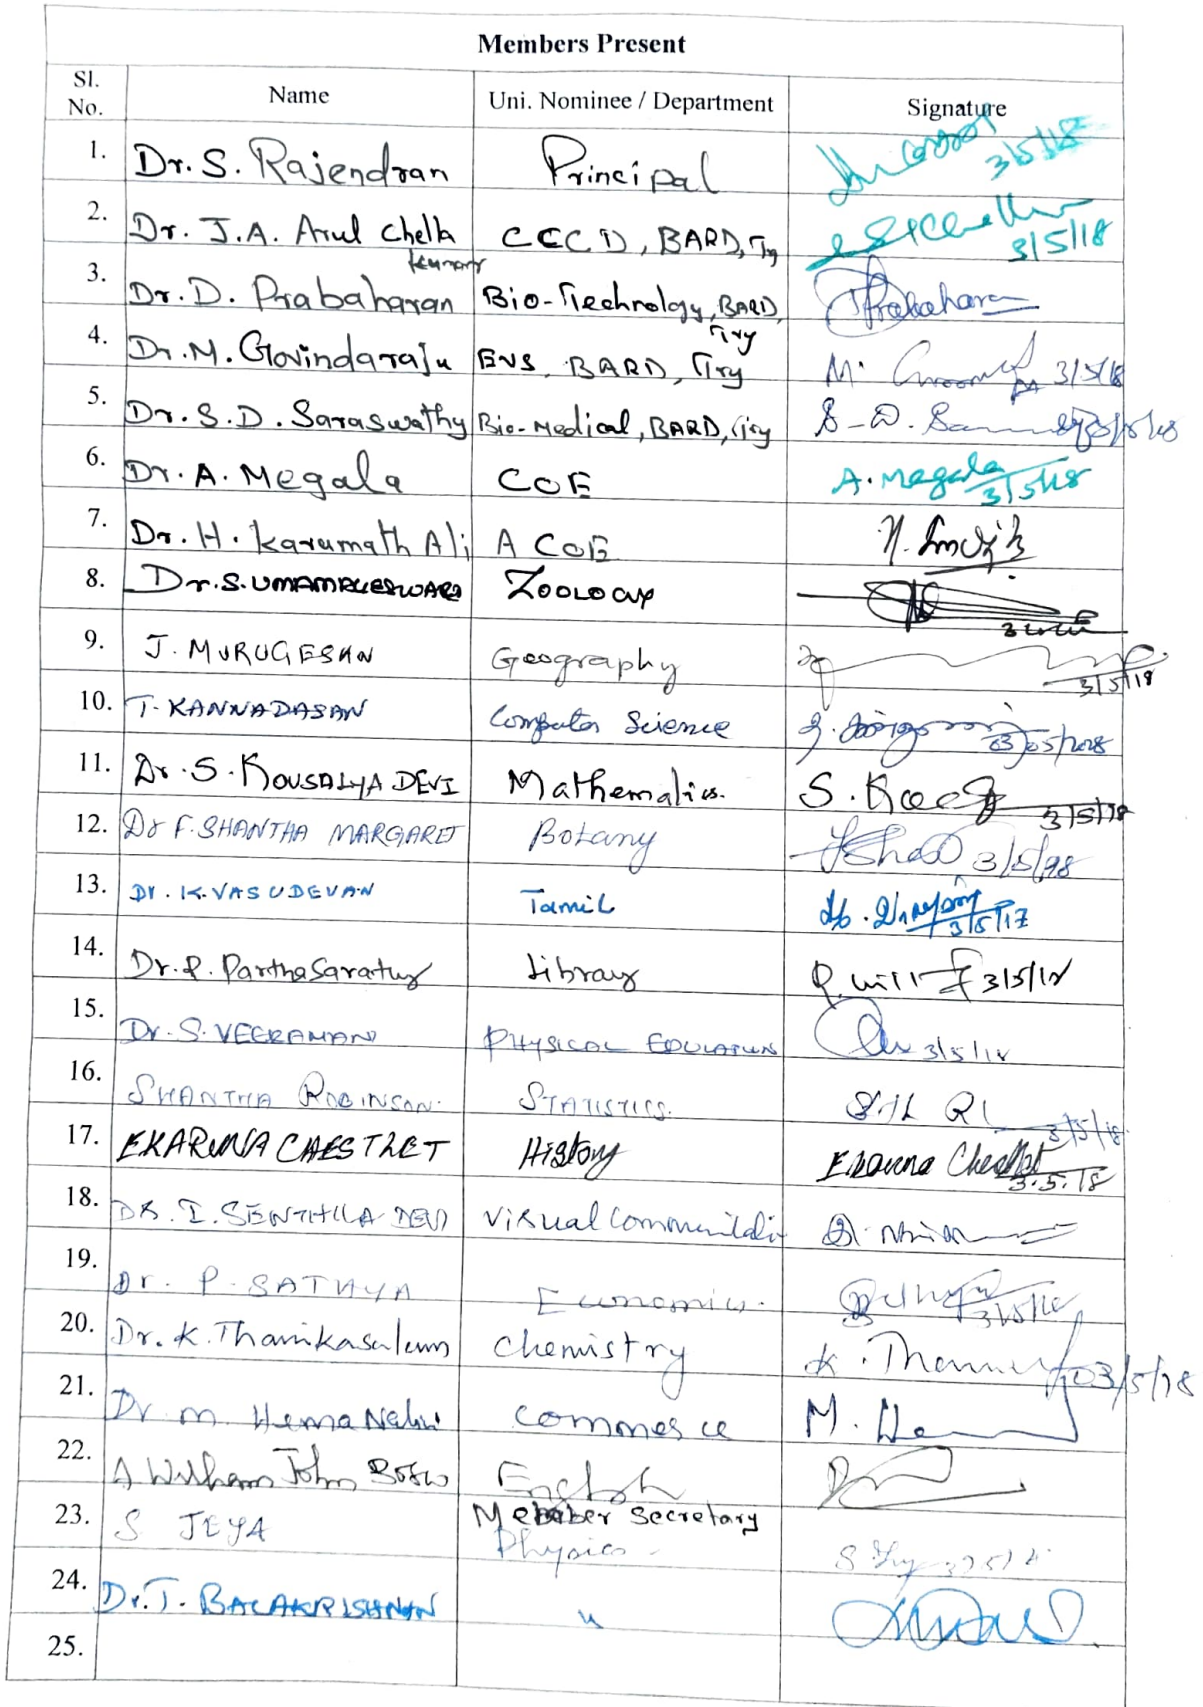 Members Present
Sl. No. Name Uni. Nominee / Department Signature
1. Dr. S. Rajendran Principal 3/5/18
2. Dr. J.A. Arul Chella kumar CCCD, BARD, Try 3/5/18
3. Dr. D. Prabaharan Bio-Technology, BARD, Try Prabaharan
4. Dr. M. Govindaraju EVS, BARD, Try M. 3/5/18
5. Dr. S.D. Saraswathy Bio-Medical, BARD, Try S-D.
6. Dr. A. Megala COE A. Megala 3/5/18
7. Dr. H. Karumath Ali A COE
8. Dr. S. UMAMAHESWARI Zoology
9. J. MURUGESAN Geography 3/5/18
10. T. KANNADASAN Computer Science
11. Dr. S. KOUSALYA DEVI Mathematics. S. 3/5/18
12. Dr F. SHANTHA MARGARET Botany
13. Dr. K. VASUDEVAN Tamil
14. Dr. P. Partha Sarathy Library 3/5/18
15. Dr. S. VEERAMANI PHYSICAL EDUCATION 3/5/18
16. SHANTHA ROBINSON. STATISTICS. 3/5/18
17. History 3.5.18
18. DR. I. SENTHILA DEVI Visual Communication
19. Dr. P. SATHYA Economics.
20. Dr. K. Thanikasalam Chemistry K. 03/5/18
21. Dr. M. Hema Nalini Commerce M.
22. A William John English
23. S JEYA Member Secretary Physics
24. Dr. T. BALAKRISHNAN "
25.